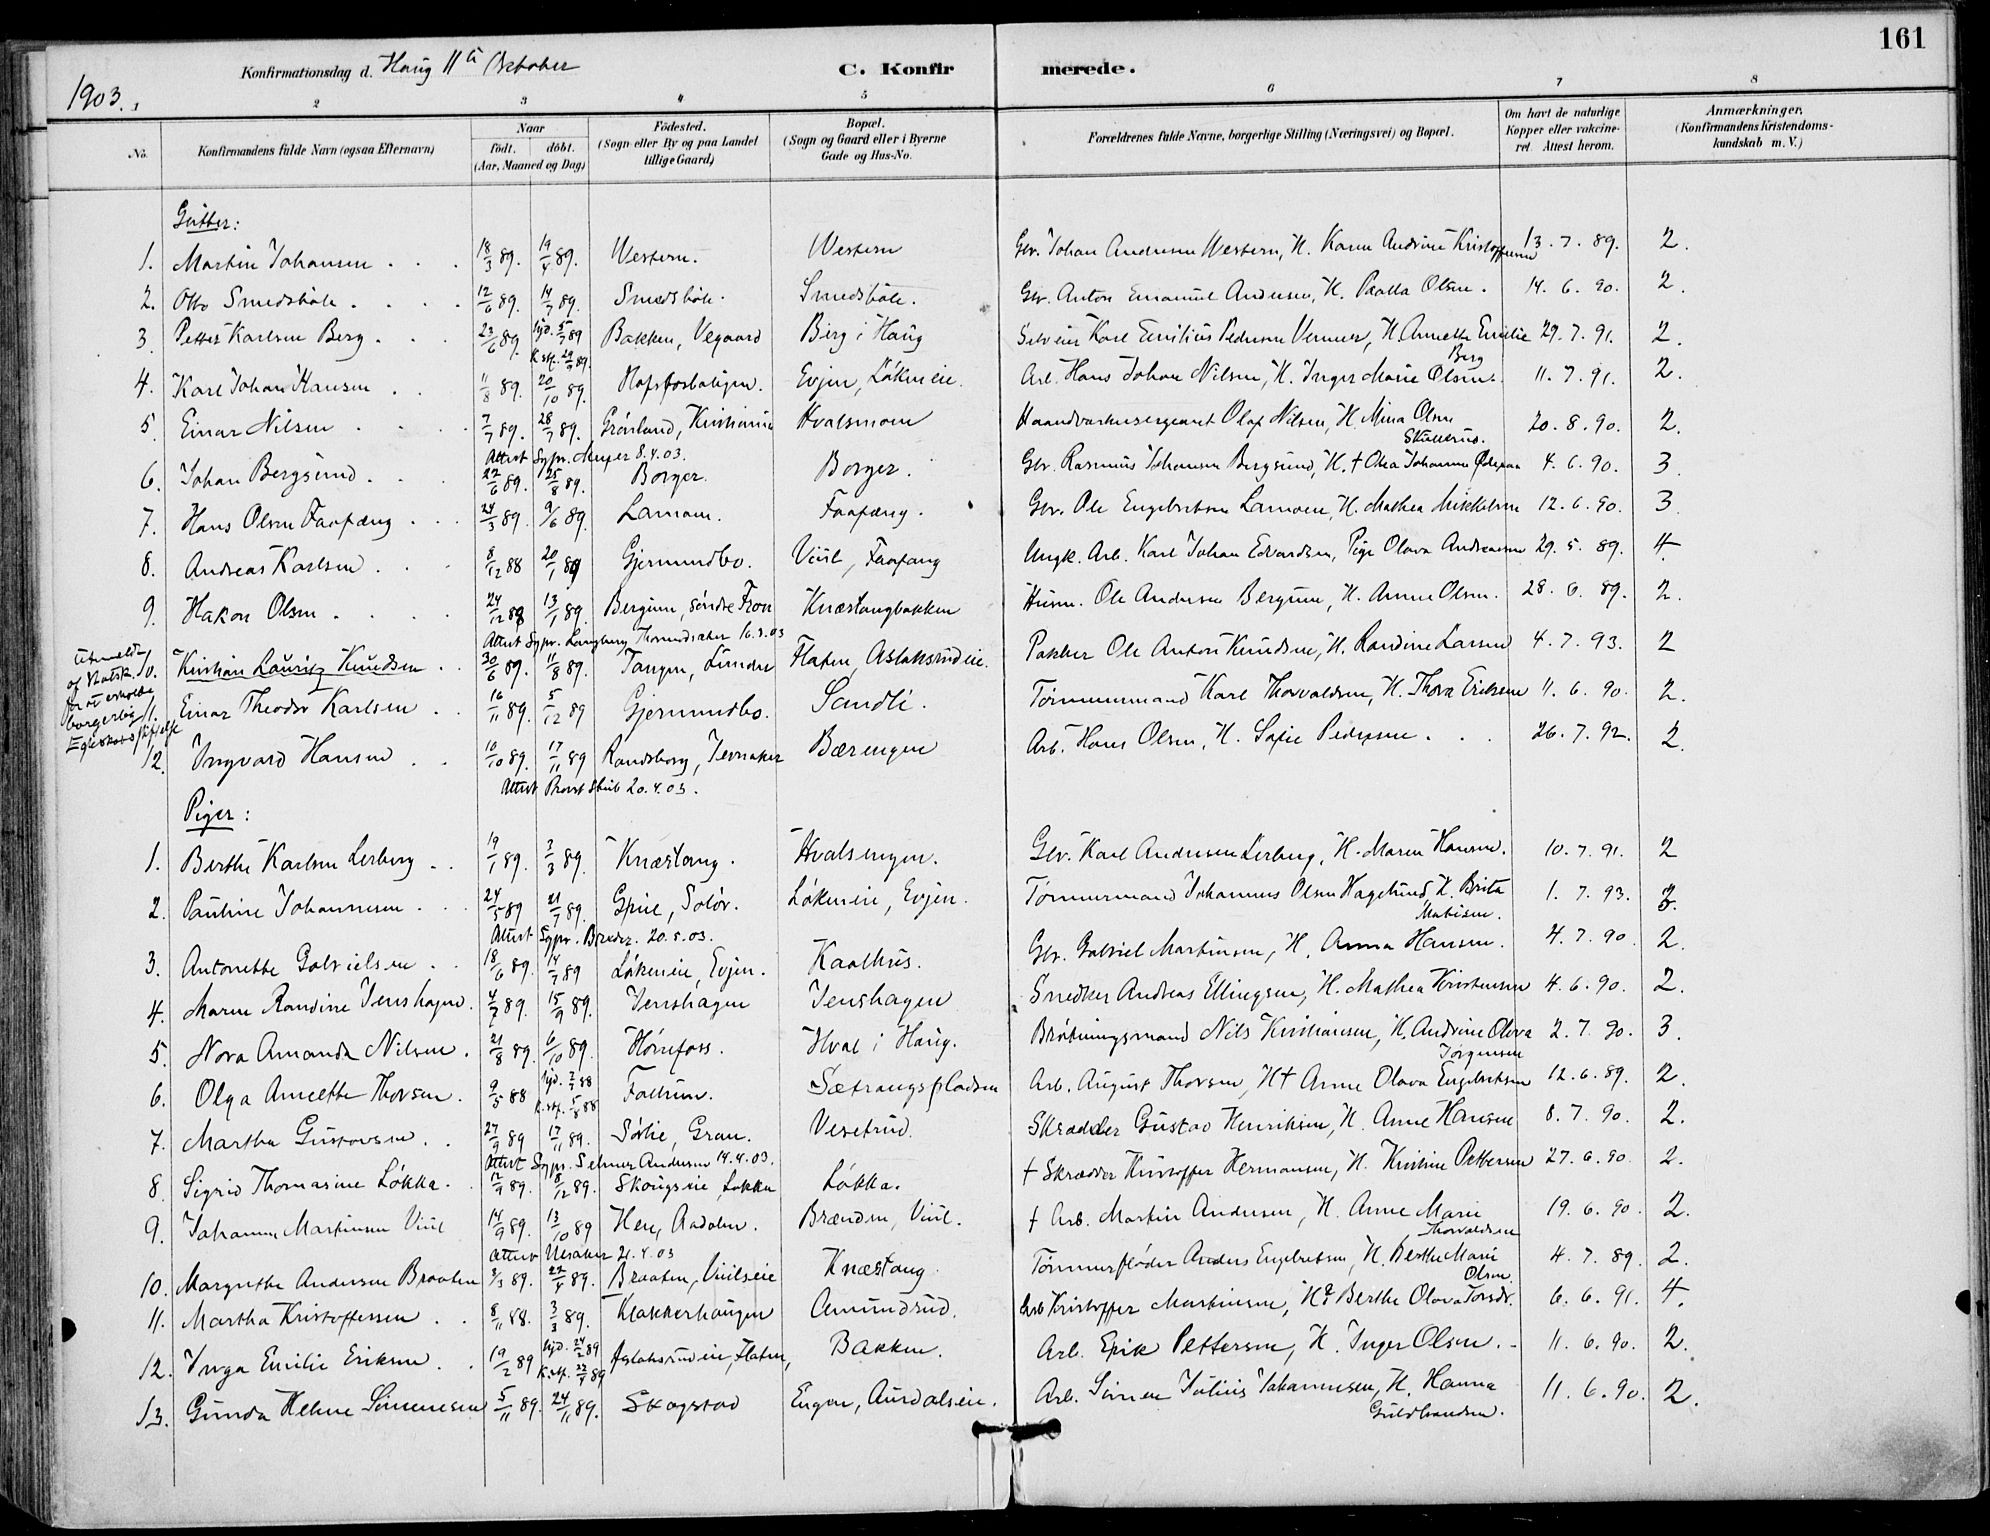 161
Konfirmationsdag d. Haug 11te Oktober C. Konfirmerede.
1903.
1 2 3 4 5 6 7 8
No. Konfirmandens fulde Navn (ogsaa Efternavn) Naar født. døbt. (Aar, Maaned og Dag) Fødested. (Sogn eller By og paa Landet tillige Gaard) Bopæl. (Sogn og Gaard eller i Byerne Gade og Hus-No. Forældrenes fulde Navne, borgerlige Stilling (Næringsvei) og Bopæl. Om havt de naturlige Kopper eller vaccineret Attest herom. Anmærkninger. (Konfirmandens Kristendomskundskab m. V.)
Gutter:
1. Martin Johansen 18/3 89. 19/4 89. Western. Western Gbr. Johan Andersen Western, H. Karen Andrine Kristoffersen 13.7.89. 2.
2. Otto Smedsbøle 12/6 89. 14/7 89. Smedsbøle. Smedsbøle. Gbr. Anton Emanuel Andersen, H. Paulla Olsen. 14.6.90. 2.
3. Petter Karlsen Berg 23/6 89. Hjd. 5/7 89 K. stf. 29/9 89. Bakken, Vegaard Berg i Haug Selveier Karl Emilius Pedersen, H. Annette Emilie Berg 29.7.91. 2.
4. Karl Johan Hansen 11/8 89. 20/10 89. Hofsfosboligen. Evjen, Løkeneie. Arb. Hans Johan Nilsen, H. Inger Marie Olsen. 11.7.91. 2.
5. Einar Nilsen 7/7 89. 28/7 89. Grønland, Kristiania Hvalsmoen Haandværkersergeant Olaf Nilsen, H. Mina Olsen 20.8.90. 2.
Attest Sgpr. 8.4.03.
6. Johan Bergsund 22/6 89. 25/8 89. Borger. Borger. Gbr. Rasmus Johansen Bergsund, H. † Olea Johanne 4.6.90. 3.
7. Hans Olsen Faafæng 24/3 89. 9/6 89. Lamoen. Faafæng. Gbr. Ole Engebretsen Lamoen, H. Mathea Mikkelsen 12.6.90. 3
8. Andreas Karlsen 8/12 88 20/1 89 Gjermundbo. Viul, Faafæng Ungk. Arb. Karl Johan Edvardsen, Pige Olava Andreasen 29.5.89. 4.
9. Hakon Olsen 24/12 88 13/1 89. Bergum, søndre Fron Knæstangbakken Husm. Ole Andersen Bergum, H. Anne Olsen. 28.6.89. 2.
Attest Sgpr. 16.3.03
10. Kristian Lauritz Knudsen 30/6 89. 11/8 89. Tangen, Lunder Flaten, Aslaksrudeie. Pakker Ole Anton Knudsen, H. Randine Larsen 4.7.93. 2
Utmeldt af Statsk. for at erholde borgerlig
11. Einar Theodor Karlsen 16/11 89. 5/12 89 Gjermundbo. Sandli. Tømmermand Karl Thorvaldsen, H. Thora Eriksen 11.6.90. 2.
12. Ingvard Hansen 10/10 89. 17/11 89 Randsborg, Jevnaker Bærengen Arb. Hans Olsen, H. Sofie Pedersen. 26.7.92. 2.
Attest Provst 20.4.03.
Piger:
1. Berthe Karlsen Lerberg 19/1 89. 3/3 89. Knæstang. Hvalsengen. Gbr. Karl Andersen Lerberg, H. Maren Hansen. 10.7.91. 2
2. Pauline Johannesen 24/5 89 21/7 89. Solør. Løkeneie, Evjen. Tømmermand Johannes Olsen Hagelund, H. Brita Matisen. 1.7.93. 3.
Attest Sgpr. 20.5.03.
3. Antonette Gabrielsen 18/6 89. 14/7 89 Løkeneie, Evjen. Kaalhus. Gbr. Gabriel Martinsen, H. Anna Hansen. 4.7.90. 2.
4. Maren Randine Jenshagen. 4/7 89. 15/9 89. Jenshagen Jenshagen Snedker Andreas Ellingsen, H. Mathea Kristensen 4.6.90. 2.
5. Nora Amanda Nilsen. 21/8 89. 6/10 89. Hønefoss. Hval i Haug. Brøtningsmand Nils Kristiansen, H. Andrine Olava Jørgensen 2.7.90. 3.
6. Olga Annette Thorsen. 9/5 88 Hjd. K. stf. 88 Follum. Sætrangspladsen Arb. August Thorsen, H † Anne Olava Engebretsen 12.6.89. 2.
7. Martha Gustavsen. 27/9 89 17/11 89. Sørlie, Gran. Vesetrud. Skrædder Gustav Henriksen, H. Anne Hansen 8.7.90. 2.
Attest Sgpr. Selmer Andersen 14.4.03.
8. Sigrid Thomasine Løkka. 12/9 89. 8/12 89. Skougseie, Løkka Løkka. † Skrædder Kristoffer Hermansen, H. Kristine Pettersen 27.6.90. 2.
9. Johanne Martinsen Viul 14/9 89. 13/10 89 Hen, Aadalen. Brænden, Viul. † Arb. Martin Andersen, H. Anne Marie Thorvaldsen 19.6.90. 2.
Attest 21.4.03
10. Margrethe Andersen Braaten 2/3 89. 22/4 89. Braaten, Viulseie Knæstang Tømmerfløder Anders Engebretsen, H. Berthe Marie Olsen. 4.7.89. 2.
11. Martha Kristoffersen 8/11 88. 3/3 89. Klækkerhaugen Amundrud. Arb. Kristoffer Martinsen, H. Berthe Olava Torsdr. 6.6.91. 4.
12. Inga Emilie Eriksen. 19/2 89 Hjd. 24/2 89 K. stf. 22/4 89 Aslaksrudeie, Flaten, Bakken. Arb. Erik Pettersen, H. Inger Olsen. 11.6.90. 2.
13. Gunda Helene Simensen 5/11 89. 24/11 89. Skogstad Engen, Aurdalseie. Arb. Simen Julius Johannesen, H. Hanna Guldbrandsen. 11.6.90. 2.